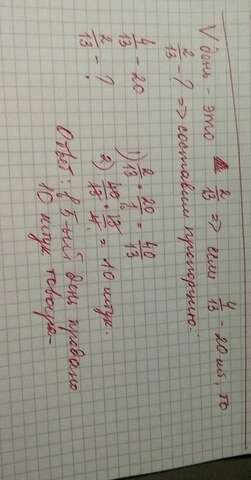 V день - это 2/13 ⇒ если 4/13 - 20 шт, то
2/13 - ? ⇒ составим пропорцию.
4/13 - 20
2/13 - ?
1) 2/13 * 20/1 = 40/13
2) 40/13 * 13/4 = 10 штук.
Ответ: в 5-ый день продано
10 штук товара.